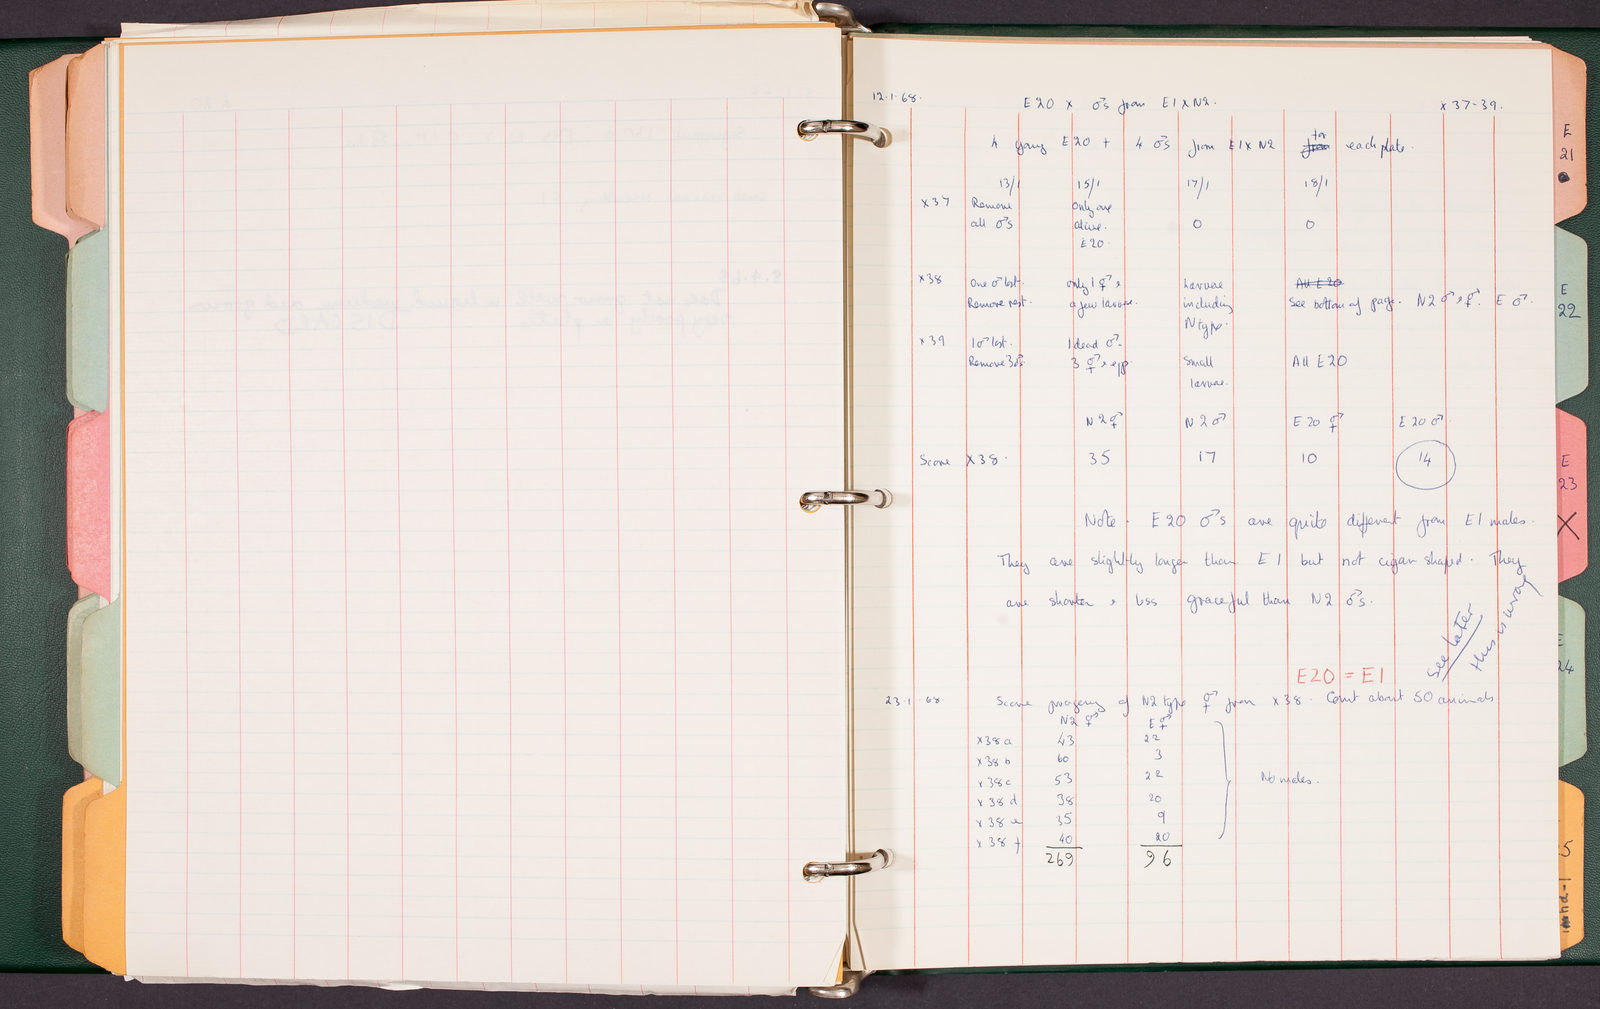 12.1.68. E20 x ♂s from E1 x N2. x37-39.
4 young E20 + 4 ♂s from E1 x N2 from for each plate.
13/1 15/1 17/1 18/1
x37 Remove only one
all ♂s alive. 0 0
E20.
x38 One ♂ lost. only 1 ⚥ & Larvae All E20
Remove rest. a few larvae. including See bottom of page. N2 ♂ & ⚥. E ♂.
N type.
x39 1♂ lost. 1 dead ♂.
Remove 3♂s 3 ⚥ & eggs Small All E20
larvae.
N2 ⚥ N2 ♂ E20 ⚥ E20 ♂.
Score x38. 35 17 10 14
Note. E20 ♂s are quite different from E1 males.
They are slightly longer than E1 but not cigar shaped. They
are shorter & less graceful than N2 ♂s.
See later
this is wrong
E20 = E1
23.1.68. Score progeny of N2 type ⚥ from x38. Count about 50 animals
N2 ⚥ E ⚥
x38a 43 22
x38b 60 3
x38c 53 22 No males.
x38d 38 20
x38e 35 9
x38f 40 20
269 96
E
21
E
22
E
23
X
E
24
5